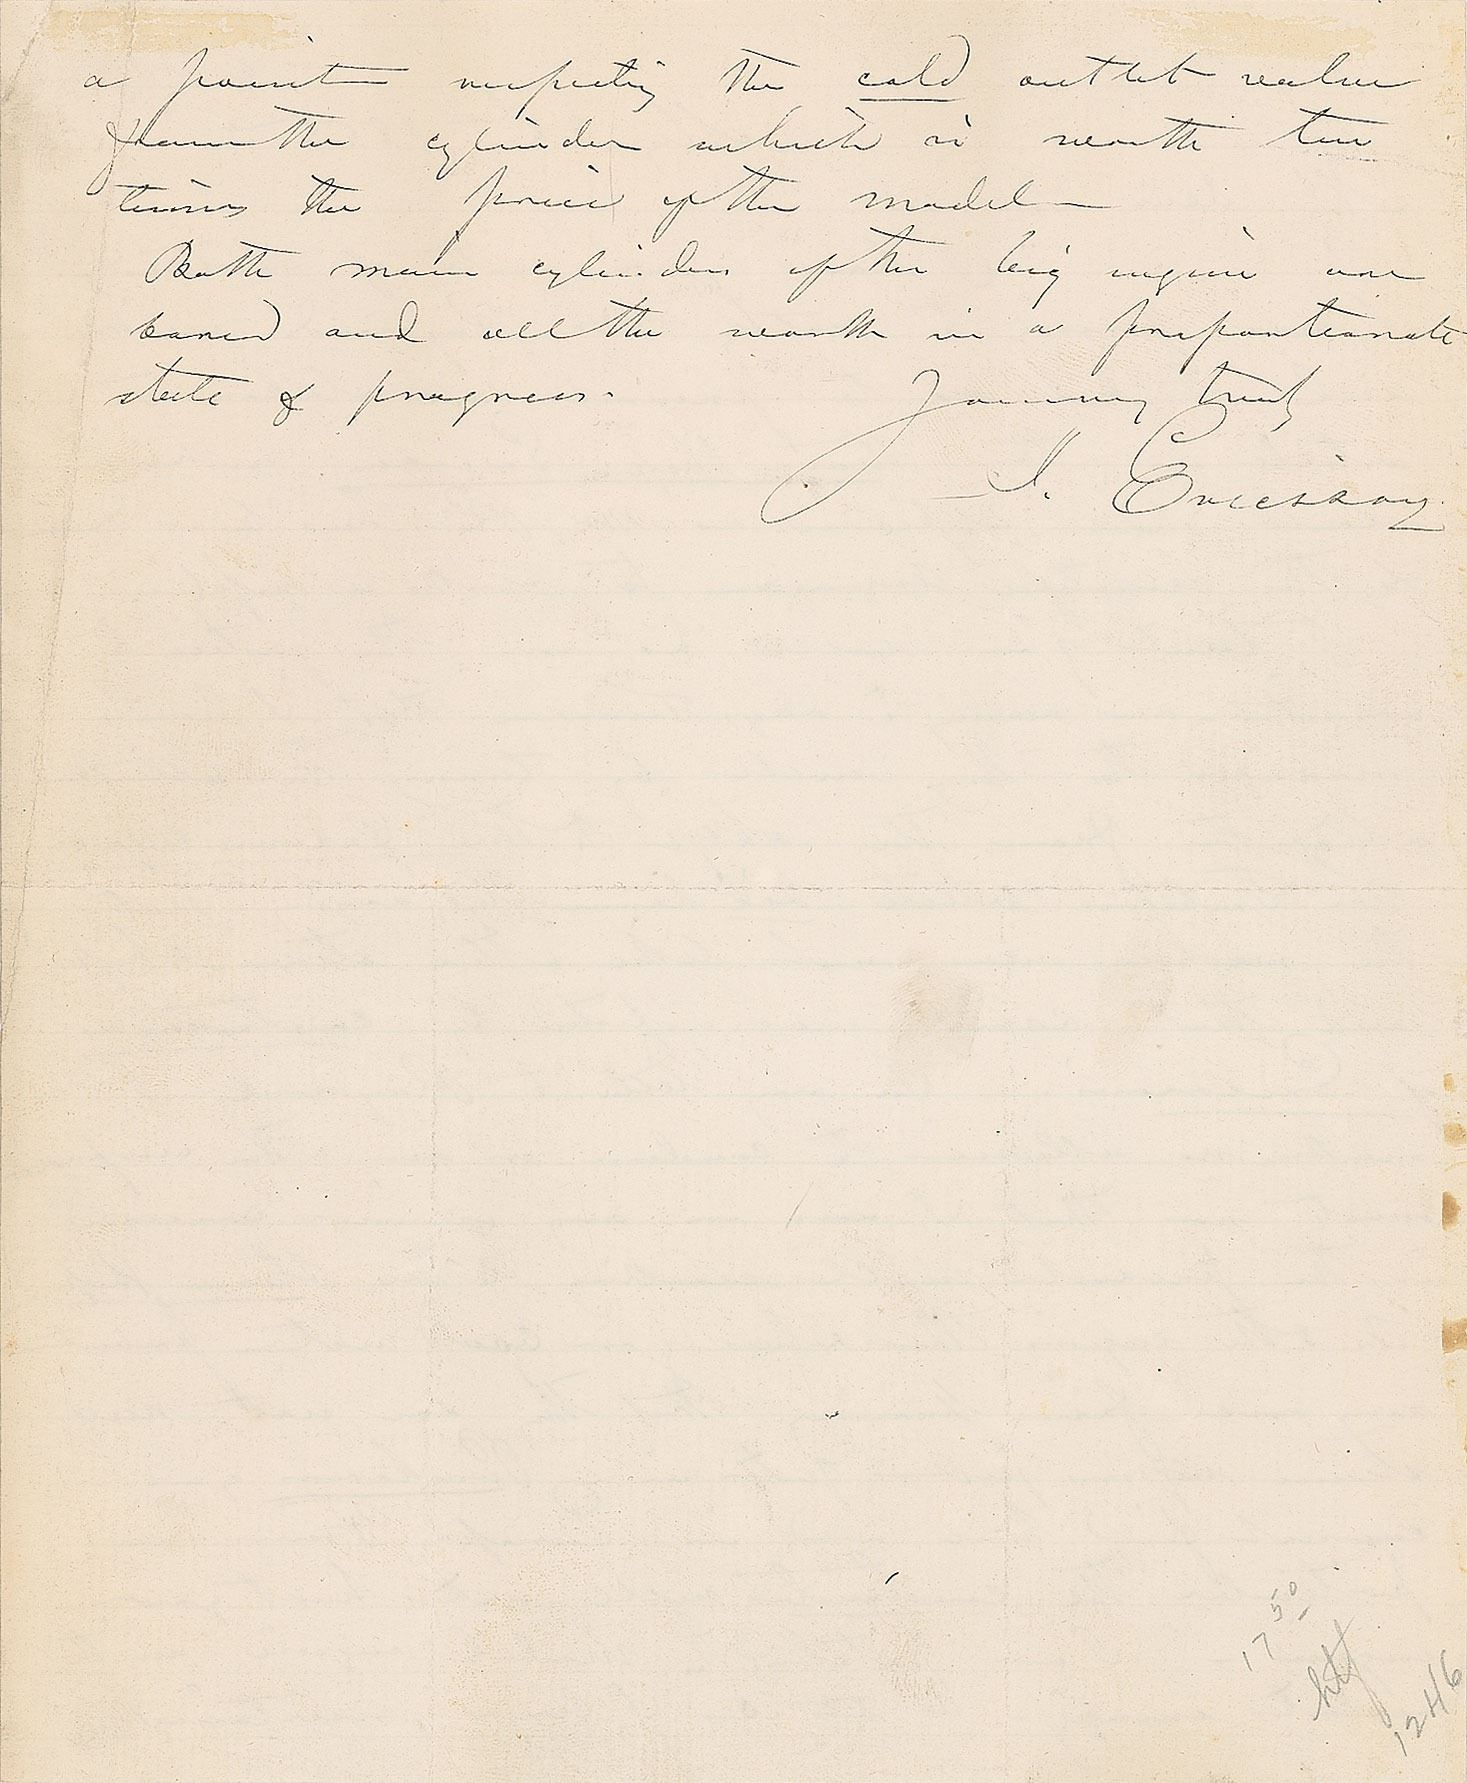 a point respecting the cold outlet valve
from the cylinder which is worth ten
times the price of the model —
Both main cylinders of the big engine are
bored and all the work in a proportionate
state of progress.
Yours very truly
J. Ericsson
17 50
1246